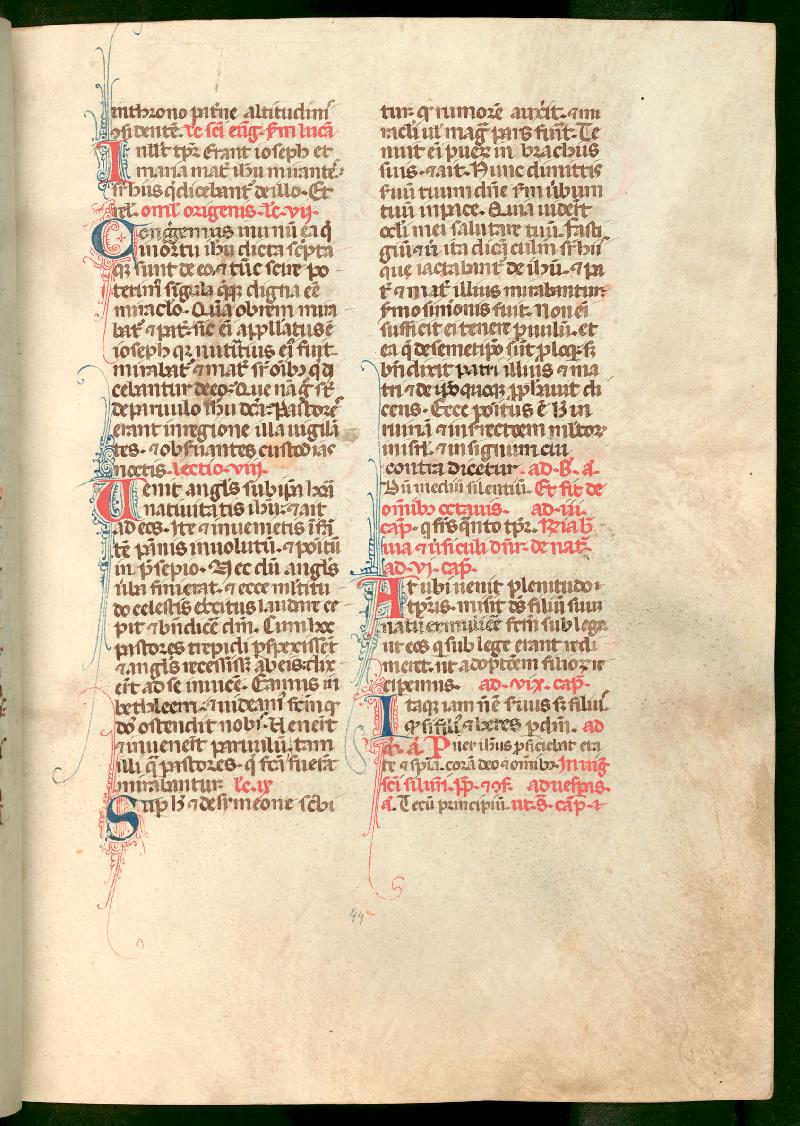 in throno pat̃ne altitudinis
ↄsidentẽ. lc̃ sc̃i eũg. s̃m lucã
In ill̃t tp̃r Erant ioseph et
maria mat̃ ih̃u mirantes
sr̃ hiis q̃ dicebant̃ de illo. Et
rel̃. om̃l origenis. lc̃. vij.
Congregemus in unũ ea q̃
in ortu ih̃u dicta sc̃pta
q̃ sunt de eo. ⁊ tũc scire po
terim̃ sĩgula q̃q̃ digna eẽ
miraclo. Quã obrem mira
bat̃ ⁊ pat̃. sic ei appllatus ẽ
ioseph qr̃ nutritius ei fuit.
mirabat̃ ⁊ mat̃ sr̃ oĩb q̃ di
cebantur de eo. Que nã g̃ st̃
de paruulo ih̃u dc̃a. Pastores
erant in regione illa uigilã
tes. ⁊ obs̃uantes custodias
noctis. lectio. viij.
Uenit angl̃s sub ip̃a horã
natiuitatis ih̃u. ⁊ ait
ad eos. Ite ⁊ inuenietis ĩfã
tẽ pãnis inuolutũ. ⁊ poitũ
in p̃sepio. Nec dũ angl̃s
uba finierat. ⁊ ecce ml̃titu
do celestis ex̃citus laudare ce
pit ⁊ bñdicẽ dm̃. Cum hoc
pastores trepidi ꝑspexissẽt
⁊ angl̃s recessiss̃ ab eis. dix
eit ad se inuicẽ. Eamus in
bethleem. ⁊ uideam̃ sicut q̃
dñs ostendit nobis. Ueneit
⁊ inueneit paruulũ. tam
illi q̃ pastores. q̃ fc̃i fuerãt
⁊ mirabantur. lc̃. ix
Sup h̃ ⁊ de symeone sc̃bi
tur. q̃ rumorẽ auxit. ⁊ mi
racl̃i ul̃ mag̃ pars fuit. Te
nuit ei puer in brachiis
suis. ⁊ ait. Nunc dimittis
s̃uũ tuum dñe s̃m ũbum
tuũ in pace. Quia uiderũt
ocl̃i mei salutare tuũ. fasti
giũ ⁊ ut ita dicã culm̃ sr̃ hiis
que iactabant̃ de ih̃u. ⁊ pa
t̃ ⁊ mat̃ illius mirabantur.
s̃mo simonis fuit. Non ei
sufficit ei tenere ꝑuulũ. et
ea q̃ de semetip̃o sũt ploq̃. sz̃
bñdixit patri illius ⁊ ma
tri ⁊ de ip̃o quoq̃ ꝓphauit di
cens. Ecce positus ẽ h̃ in
ruinã ⁊ in resrectõem ml̃tor
in isrl̃. ⁊ in signum cui
contradicetur. ad. B̃. ã.
Dũ mediũ silentiũ. Et fit de
om̃ibɔ octauis. ad. iii.
cap̃. q̃ s̃ris q̃nto tp̃r. Reia b̃
uia ⁊ us̃iculi dñr. de nat̃.
ad. vi. cap̃.
At ubi uenit plenitudo
tp̃ris. misit ds̃ filiũ suũ
natũ ex muliere fc̃m sub lege
ut eos q̃ sub lege erant redi
meret. ut adoptõem filioꝝ re
cipemus. ad. vix. cap̃.
Itaq̃ iam ñ ẽ s̃uus sz̃ filiɔ.
q̃ si fili ⁊ heres p dm̃. ad
di. ã. Puer ih̃us ꝓficiebat eta
te ⁊ sp̃ia. corã deo ⁊ omibɔ. In uig̃
sc̃i siluri. p̃p. ⁊ ɔf. ad uesp̃as.
ã. Tecũ principiũ. ut. S̃. cap̃. ⁊
44